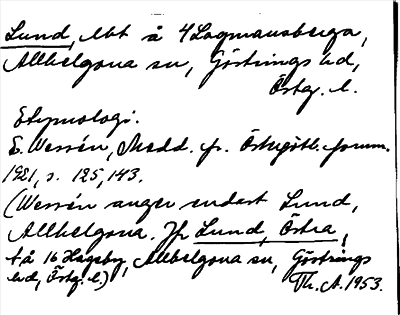 Lund, ebt å 4 Lagmansberga,
Allhelgona sn, Göstrings hd,
Östg. l.
Etymologi.
E. Wessén, Medd. fr. Östergötl. fornm.
1921, s. 125, 143.
(Wessén anger endast Lund,
Allhelgona. Jfr Lund, Östra,
t å 16 Hageby, Allhelgona sn, Göstrings
hd, Östg. l.) Th. A. 1953.